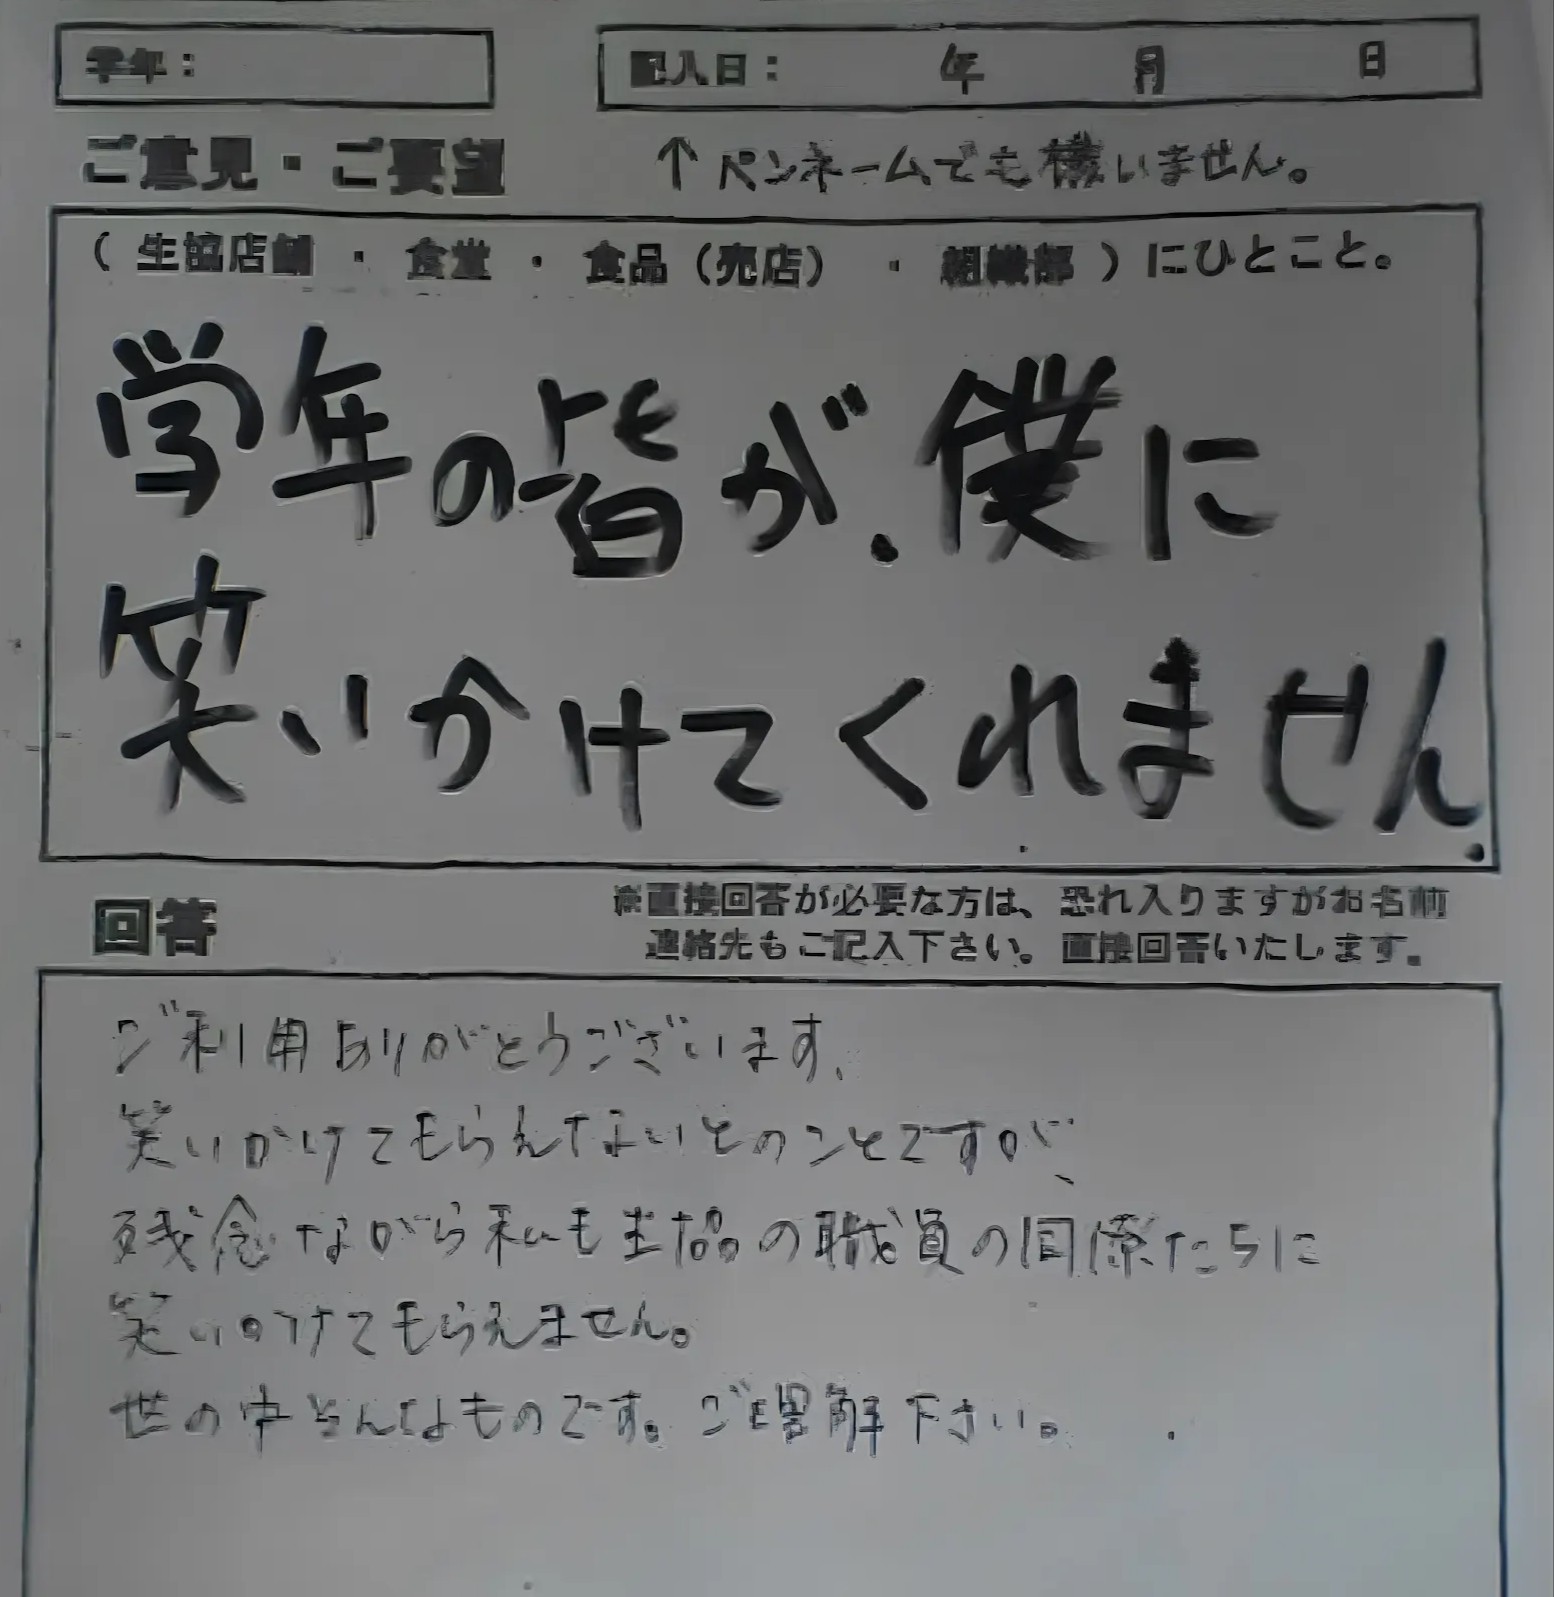 学年：
記入日： 年 月 日
ご意見・ご要望
↑ペンネームでも構いません。
（ 生協店舗 ・ 食堂 ・ 食品（売店） ・ 組織部 ）にひとこと。
学年の皆が、僕に
笑いかけてくれません.
回答
※直接回答が必要な方は、恐れ入りますがお名前
連絡先もご記入下さい。直接回答いたします。
ご利用ありがとうございます、
笑いかけてもらえないとのことですが、
残念ながら私も生協の職員の同僚たちに
笑いかけてもらえません。
世の中そんなものです。ご理解下さい。